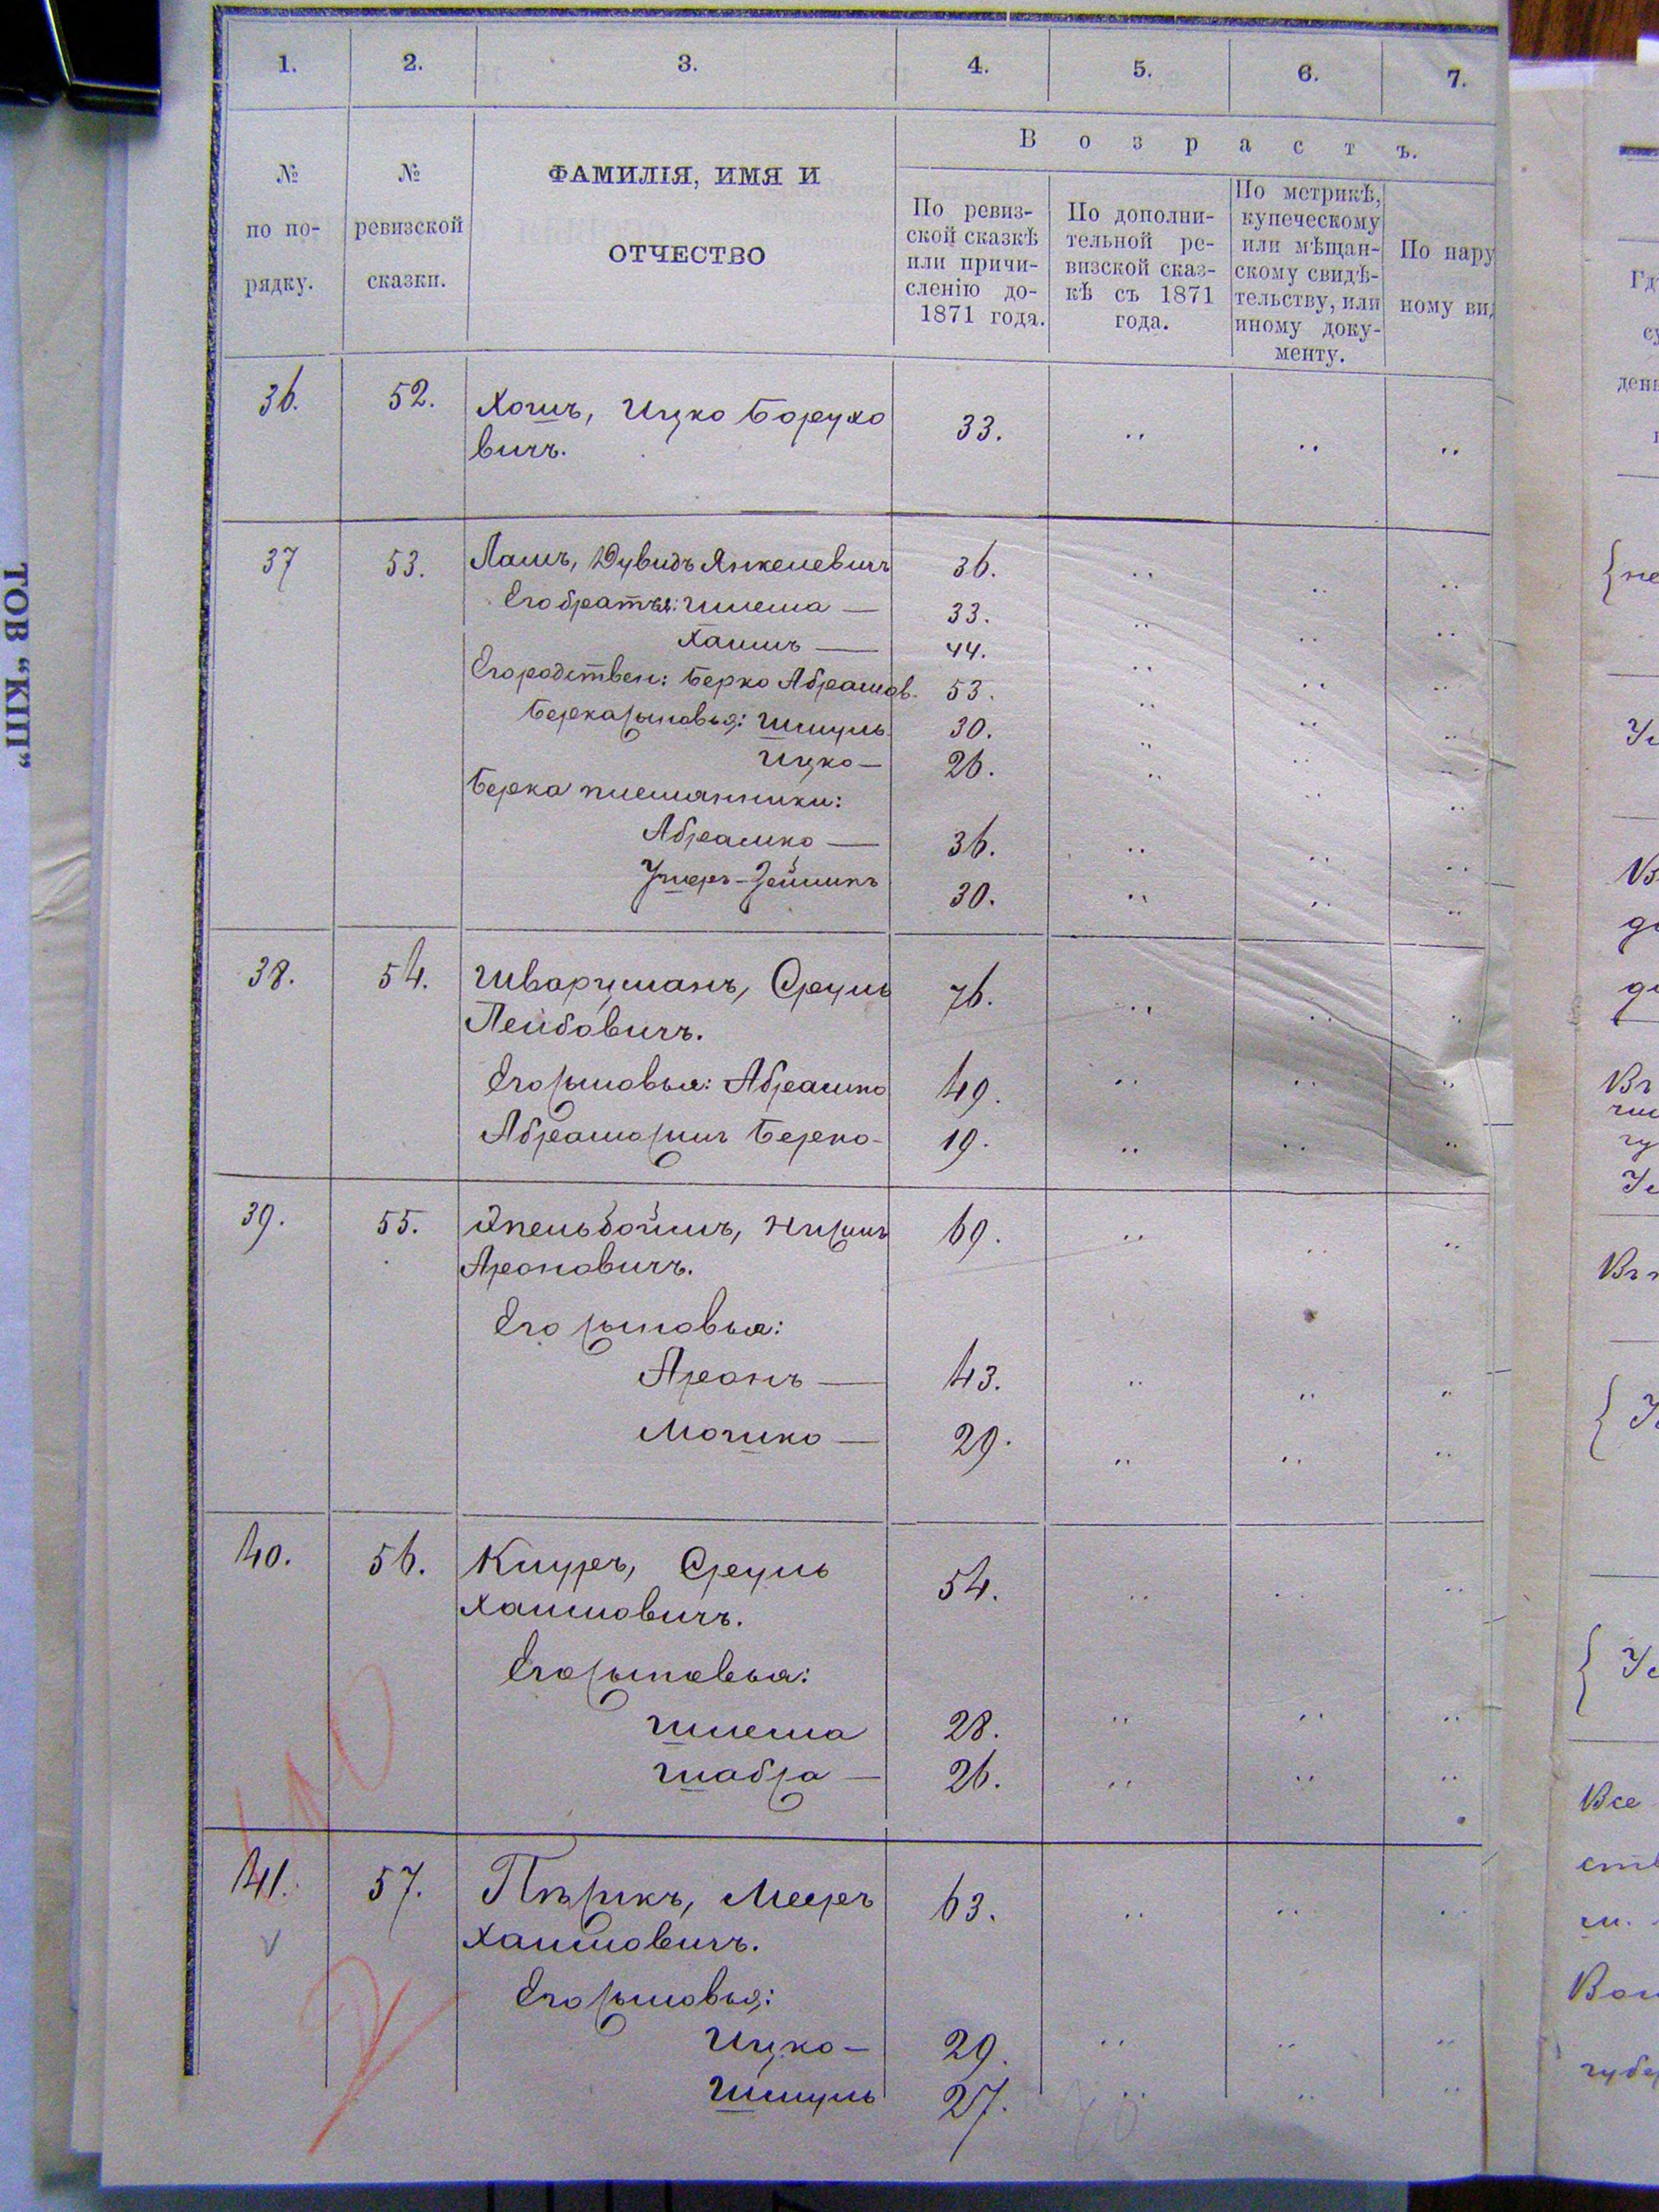 1. 2. 3. 4. 5. 6. 7.
В о з р а с т ъ.
№ по по-рядку.
№ ревизской сказки.
ФАМИЛІЯ, ИМЯ И
ОТЧЕСТВО
По ревиз-
ской сказкѣ
или причи-
сленію до-
1871 года.
По дополни-
тельной ре-
визской сказ-
кѣ съ 1871
года.
По метрикѣ,
купеческому
или мѣщан-
скому свидѣ-
тельству, или
иному доку-
менту.
По нару
ному ви
36. 52. Хошъ, Ицко Борухо 33. „ „ „
вичъ.
37 53. Лашъ, Дувидъ Янкелевичъ 36. „ „ „
Его братья: Шлема — 33. „ „ „
Хаимъ — 44. „ „ „
Его родствен: Берко Абрамов. 53. „ „ „
Берка сыновья: Шмуль 30. „ „ „
Ицко — 26. „ „ „
Берка племянники:
Абрамко — 36. „ „ „
Ушеръ-Зейликъ 30. „ „ „
38. 54. Шварцманъ, Сруль 76. „ „ „
Лейбовичъ.
Его сыновья: Абрамко 49. „ „ „
Абрама сынъ Берко - 19. „ „ „
39. 55. Эпельбоймъ, Нисинъ 69. „ „ „
Ароновичъ.
Его сыновья:
Аронъ — 43. „ „ „
Мошко — 29. „ „ „
40. 56. Кнуръ, Сруль 54. „ „ „
Хаимовичъ.
Его сыновья:
Шлема 28. „ „ „
Шабса — 26. „ „ „
41. 57. Пѣсикъ, Мееръ 63. „ „ „
Хаимовичъ.
Его сыновья:
Ицко — 29. „ „ „
Шмуль 27. „ „ „
ТОВ “КІП”
Все
губе